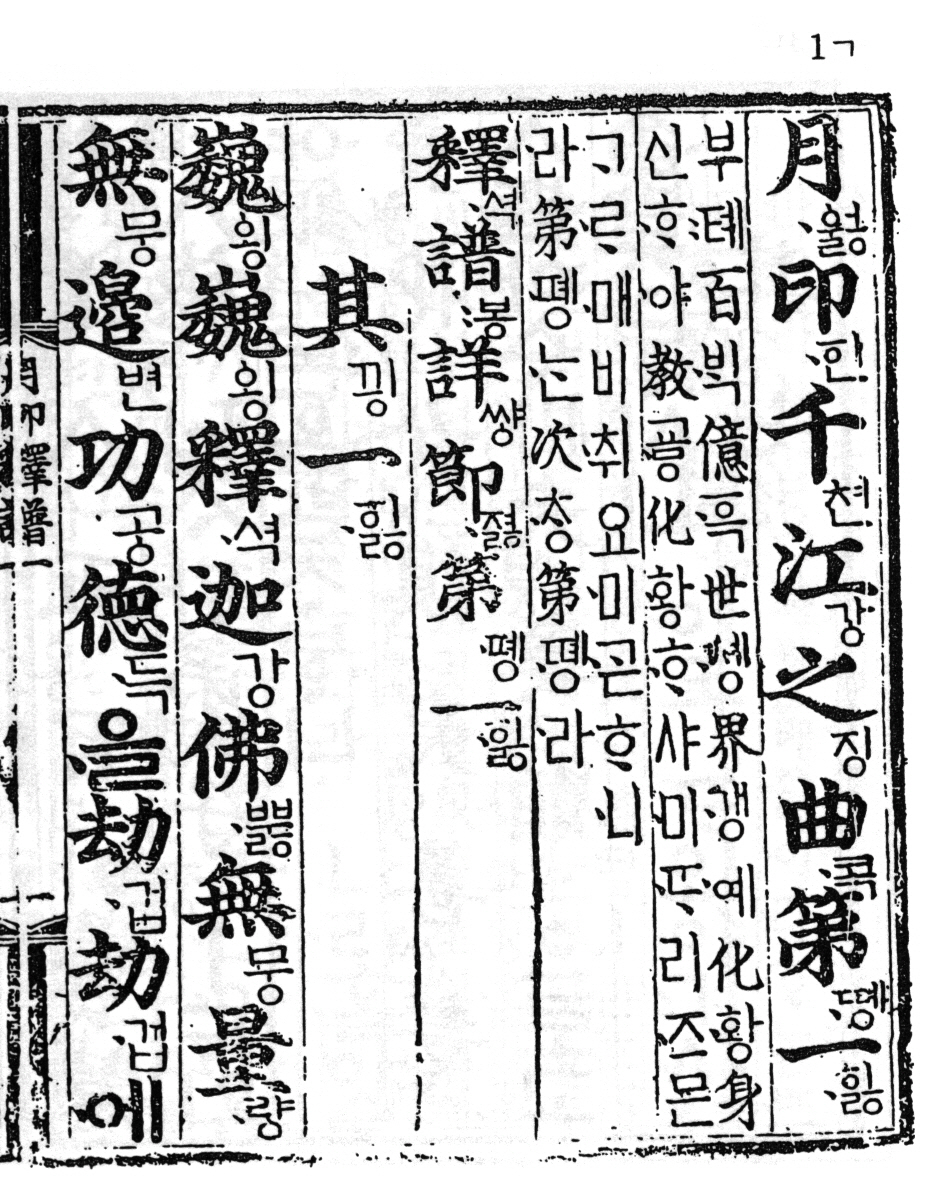 1ㄱ
月·ᅌᅯᇙ印·ᅙᅵᆫ千쳔江강之징曲·콕第·똉一·ᅙᅵᇙ
부:톄百·ᄇᆡᆨ億·ᅙᅳᆨ世·솅界·갱예化·황身
신ᄒᆞ·야教·ᄀᆈᇢ化·황·ᄒᆞ·샤미·ᄃᆞ·리·즈믄
ᄀᆞ·ᄅᆞ·매비·취요·미·ᄀᆞᆮ·ᄒᆞ·니
·라第·똉·ᄂᆞᆫ次·ᄎᆞᆼ第·똉·라
釋·셕譜:봉詳썅節·져ᇙ第·똉一·ᅙᅵᇙ
其끵一·ᅙᅵᇙ
巍ᅌᅬᆼ巍ᅌᅬᆼ釋·셕迦강佛·뿌ᇙ無뭉量·량
無뭉邊변功공德·득·을劫·겁劫·겁·에
月印釋譜一